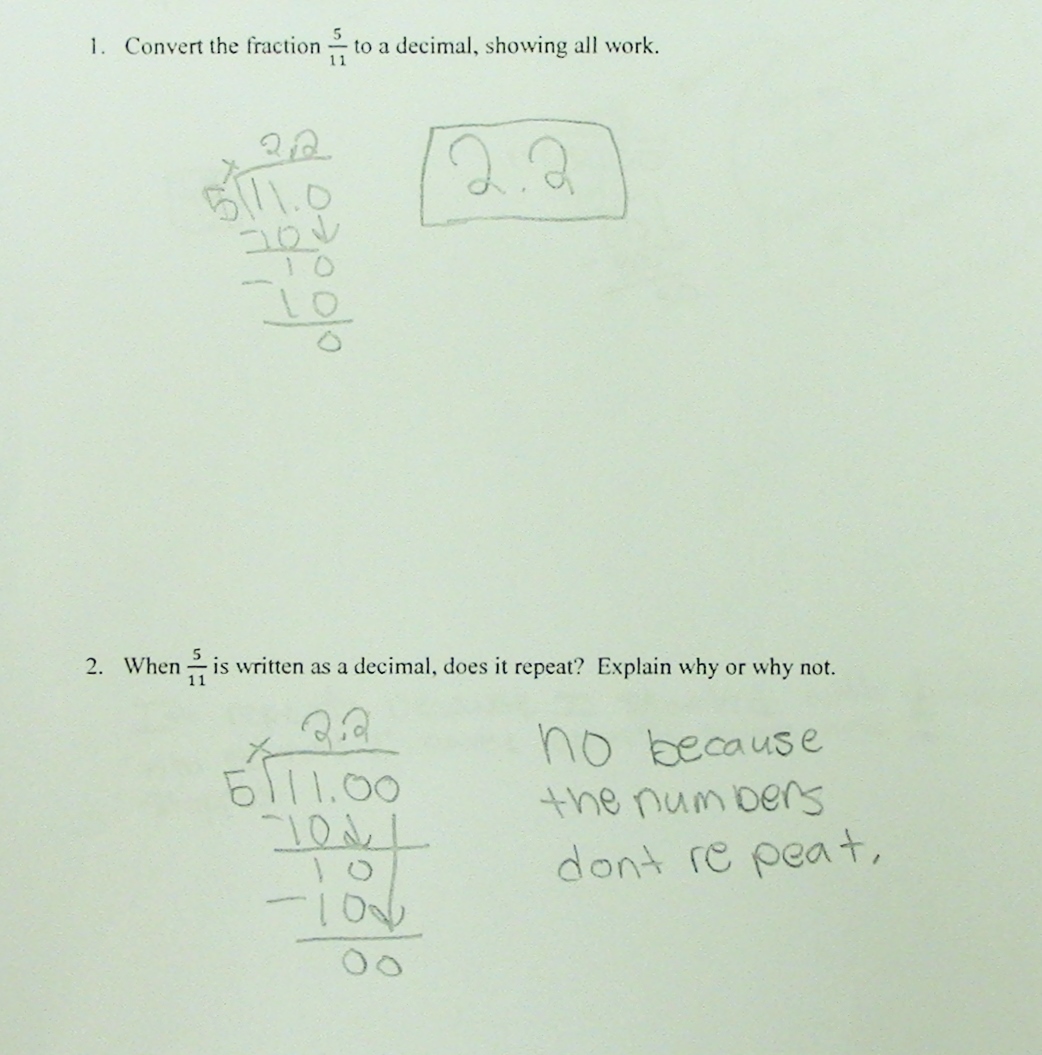 1. Convert the fraction 5/11 to a decimal, showing all work.
2.2
5 11.0
-10
-10
10
0
2.2
2. When 5/11 is written as a decimal, does it repeat? Explain why or why not.
2.2
5 11.00
-10
10
-10
00
no because
the numbers
dont repeat.